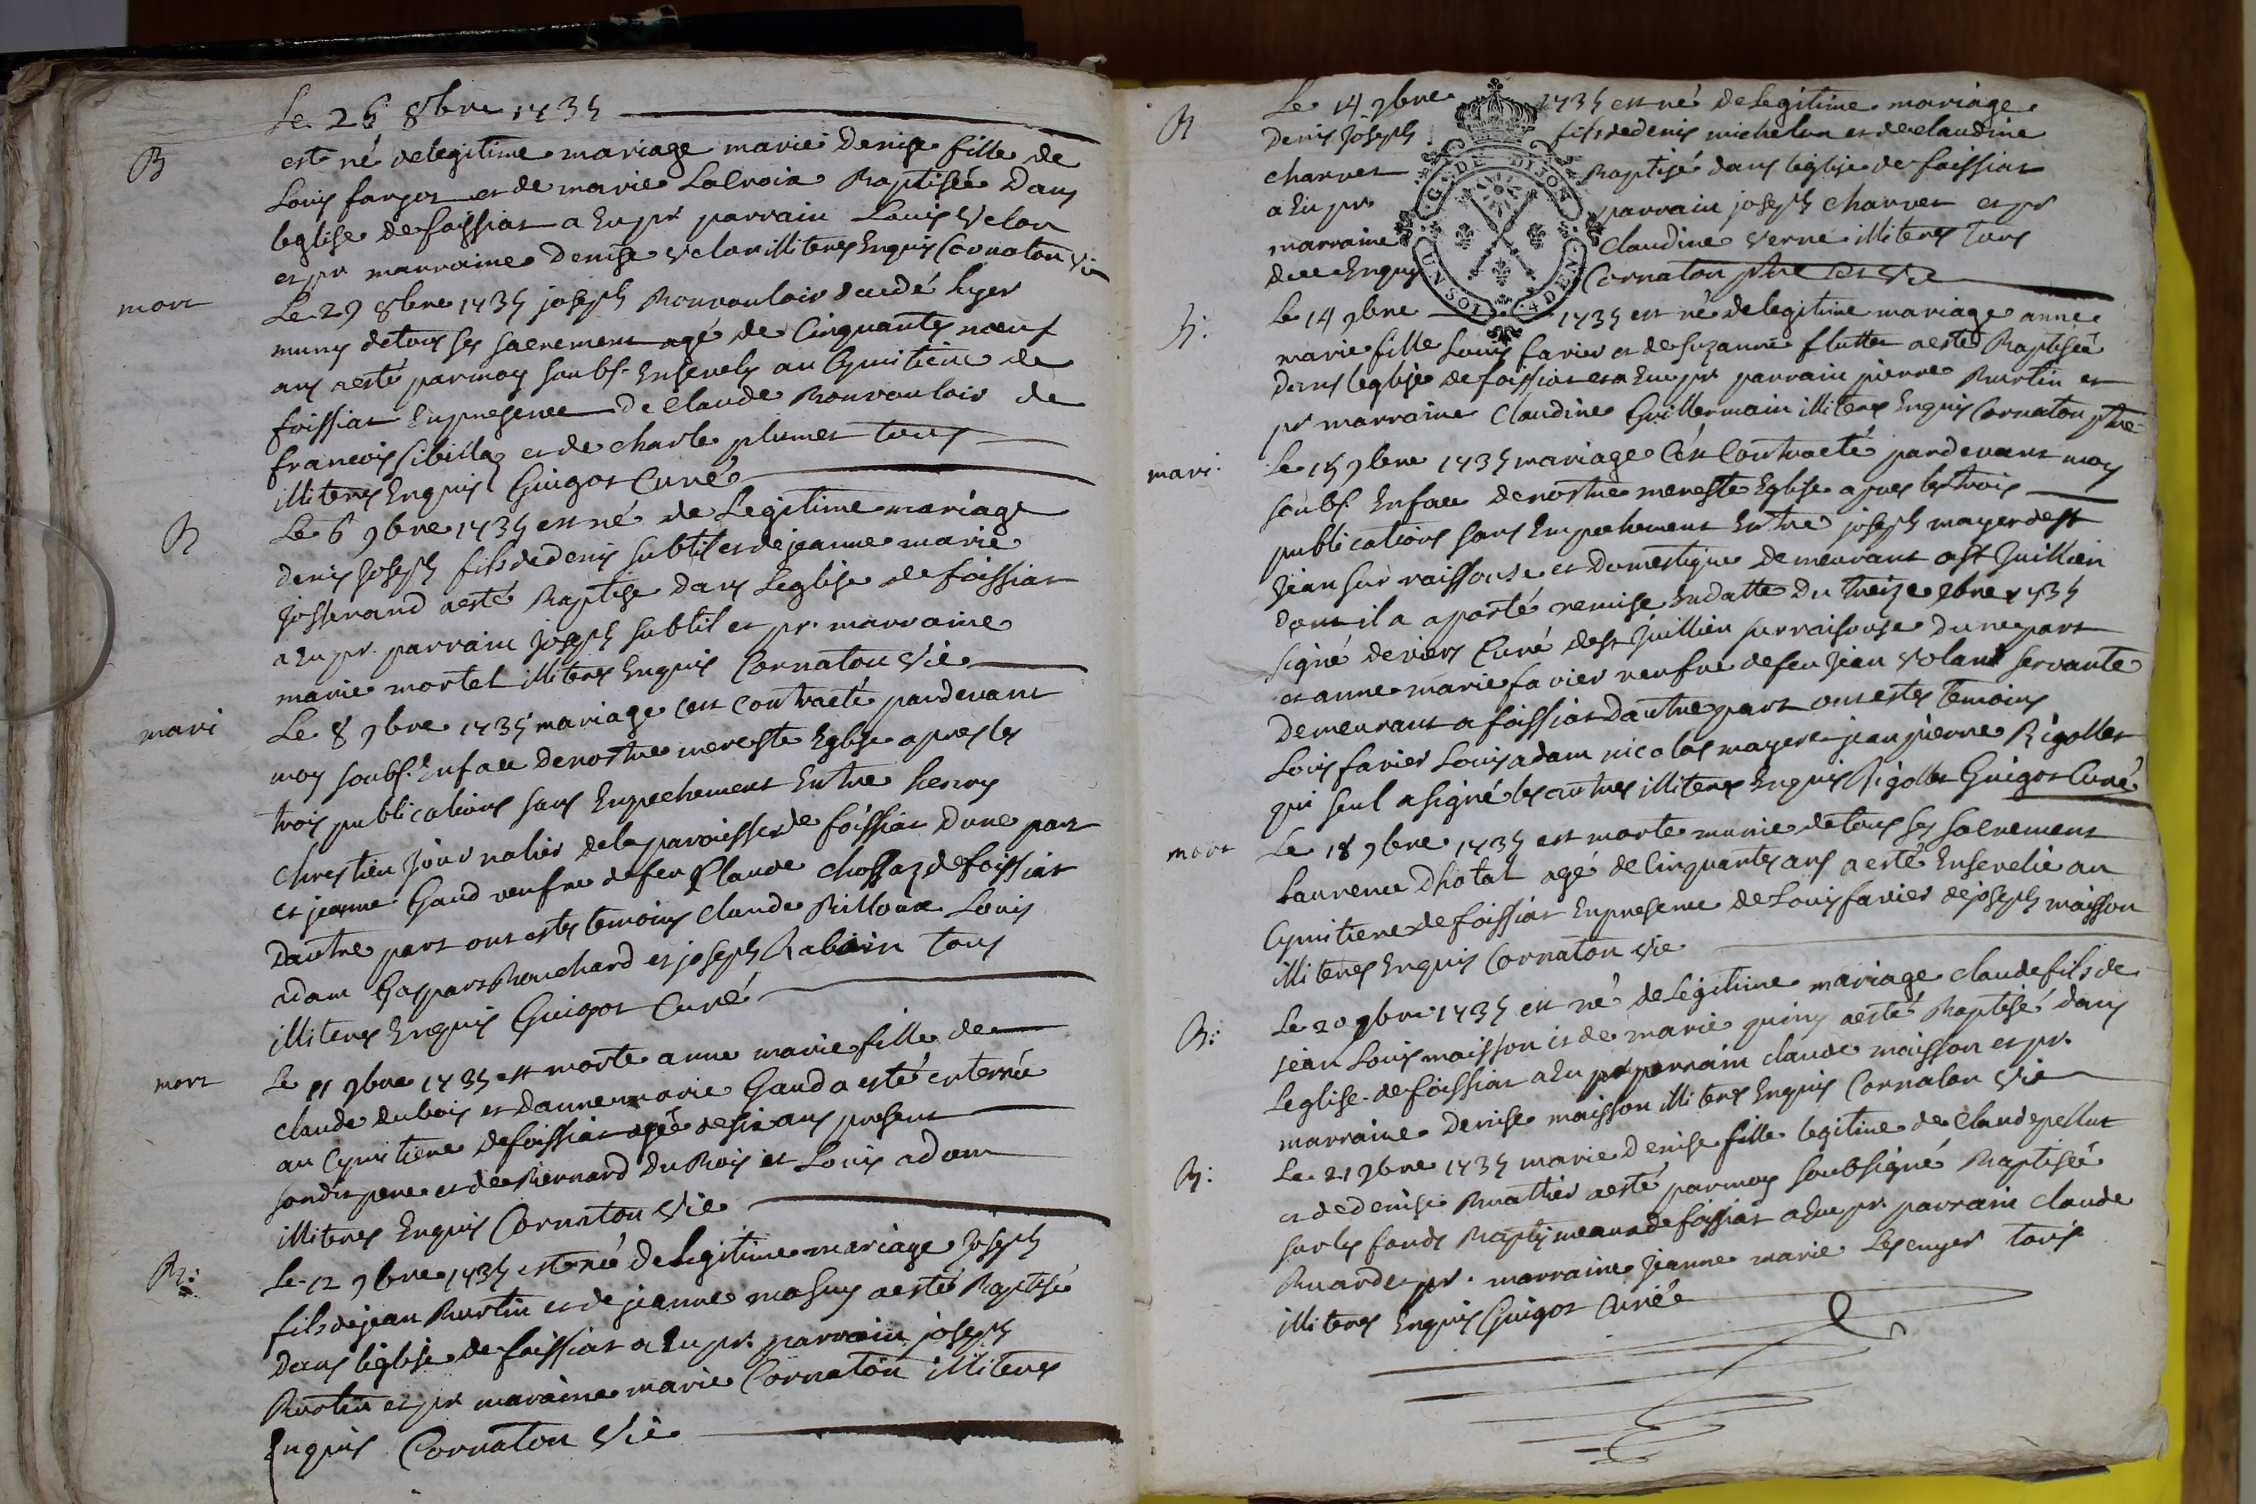 Le 26 8bre 1735
B
est né de legitime mariage marie Denise fille de
Louis farjot et de marie Lacroix Baptisée Dans
leglise de foissiat a Eu pr parrain Louis Velon
et pr marraine Denise Velon illiteres Enquis Cornaton vic
mort
Le 29 8bre 1735 joseph Bonvouloir
munis de tous ses sacrement agé de Cinquante noeuf
ans aesté par moy soubs. Ensevely au Cymitiere de
foissiat En presence De Claude Bonvouloir de
francois Sibille et de charle plumet tous
illiteres Enquis Guigot Curé
B
Le 6 9bre 1735 est né de Legitime mariage
denis Joseph fils de denis subtil et de jeanne marie
Josserand aesté Baptise Dans Leglise de foissiat
a Eu pr. parrain Joseph subtil et pr. marraine
marie mortel illiteres Enquis Cornaton Vic
mari
Le 8 9bre 1735 mariage cest contracté pardevant
moy soubs. En face denostre mere ste Eglise apres les
trois publications sans Empechement Entre henry
chrestien Journalier de la paroisse de foissiat Dune part
et jeanne Gaud veufve de feu Claude Chossaz de foissiat
Dautre part ont estes temoins Claude Billoux Louis
adam Gaspart Bouchard et joseph Rabuin tous
illiteres Enquis Guigot Curé
mort
Le 11 9bre 1735 est morte anne marie fille de
Claude dubois et Danne marie Gaud a esté enterrée
au Cymitiere de foissiat agée de six ans present
sondit pere et de Bernard Du Bois et Louis adam
illiteres Enquis Cornaton Vic
B:
Le 12 9bre 1735 est né de Legitime mariage Joseph
fils de jean Burtin et de jeanne masuy aesté Baptisé
Dans leglise de foissiat a Eu pr. parrain joseph
Burtin et pr maraine marie Cornaton illiteres
Enquis Cornaton Vic
B
Le 14 9bre 1735 est né de Legitime mariage
Denis Joseph fils de denis michelon et de claudine
charvet Baptisé dans leglise de foissiat
a Eu pr parrain joseph charvet et pr
marraine Claudine Verne illiteres tous
Enquis Cornaton ptre et Vic
G. DE DIJON
UN SOL 4 DEN
B:
Le 14 9bre 1735 est né de legitime mariage anne
marie fille Louis favier et de suzanne fluttet aesté Baptisée
Dans leglise de foissiat et a Eu pr parrain pierre Burtin et
pr marraine Claudine Guillermain illiteres Enquis Cornaton ptre
mari:
Le 15 9bre 1735 mariage Cest Contracté pardevant moy
soubs. En face denostre mere ste Eglise apres les trois
publications sans Empechement Entre joseph mayer de st
jean sur raissouse et Domestique demeurant a st Juillien
Dont il a aporté remise En datte Du treize 9bre 1735
signé deviers Curé de st Juillien sur raisouse dune part
et anne marie favier veufve de feu Jean Volant servante
Demeurant a foissiat Dautre part ont estes temoins
Louis favier Louis adam nicolas mayer et jean pierre Rigollet
qui seul a signé les autres illiteres Enquis Rigollet Guigot Curé
mort
Le 18 9bre 1735 est morte munie de tous ses sacrement
Laurence Dhotal agé de Cinquantes ans aesté Ensevelie au
Cymitiere de foissiat En presence de Louis favier de joseph moisson
illiteres Enquis Cornaton Vic
B:
Le 20 9bre 1735 est né de Legitime mariage claude fils de
jean Louis moisson et de marie aesté Baptisé dans
Leglise de foissiat a Eu pr parrain claude moisson et pr.
marraine Denise moisson illiteres Enquis Cornaton Vic
B:
Le 21 9bre 1735 marie Denise fille legitime de Claude pellut
et de denise Buathier aesté par moy soubsigné Baptisée
sur les fonds Baptismeaux de foissiat a Eu pr. parrain Claude
Buard et pr. marraine Jeanne marie Lescuyer tous
illiteres Enquis Guigot Curé